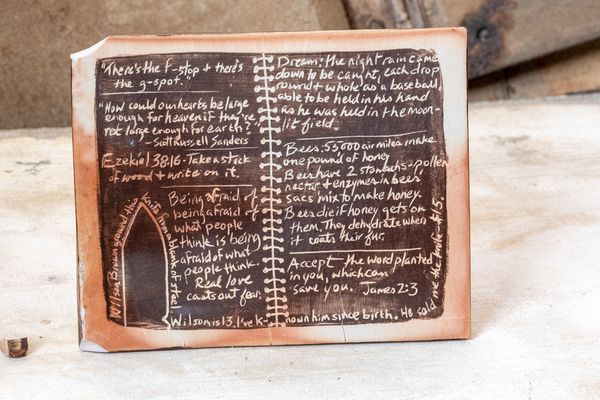 "There's the f-stop + there's
the g-spot.
"How could our hearts be large
enough for heaven if they're
not large enough for earth?"
-Scott Russell Sanders
Ezekiel 38:16-Take a stick
of wood + write on it.
Wilson ground this knife from a blank of steel.
Being afraid of
being afraid of
what people
think is being
afraid of what
people think.
Real love
casts out fear.
Dream: the night rain came
down to be caught, each drop
round + whole as a baseball,
able to be held in his hand
as he was held in the moon-
lit field.
Bees: 55000 air miles make
one pound of honey
Bees have 2 stomachs-pollen
nectar + enzymes in bees'
sacs mix to make honey.
Bees die if honey gets on
them. They dehydrate when
it coats their fur.
Accept the word planted
in you, which can
save you. James 2:3
Wilson is 13. I've k-nown him since birth. He sold me the knife-$15.